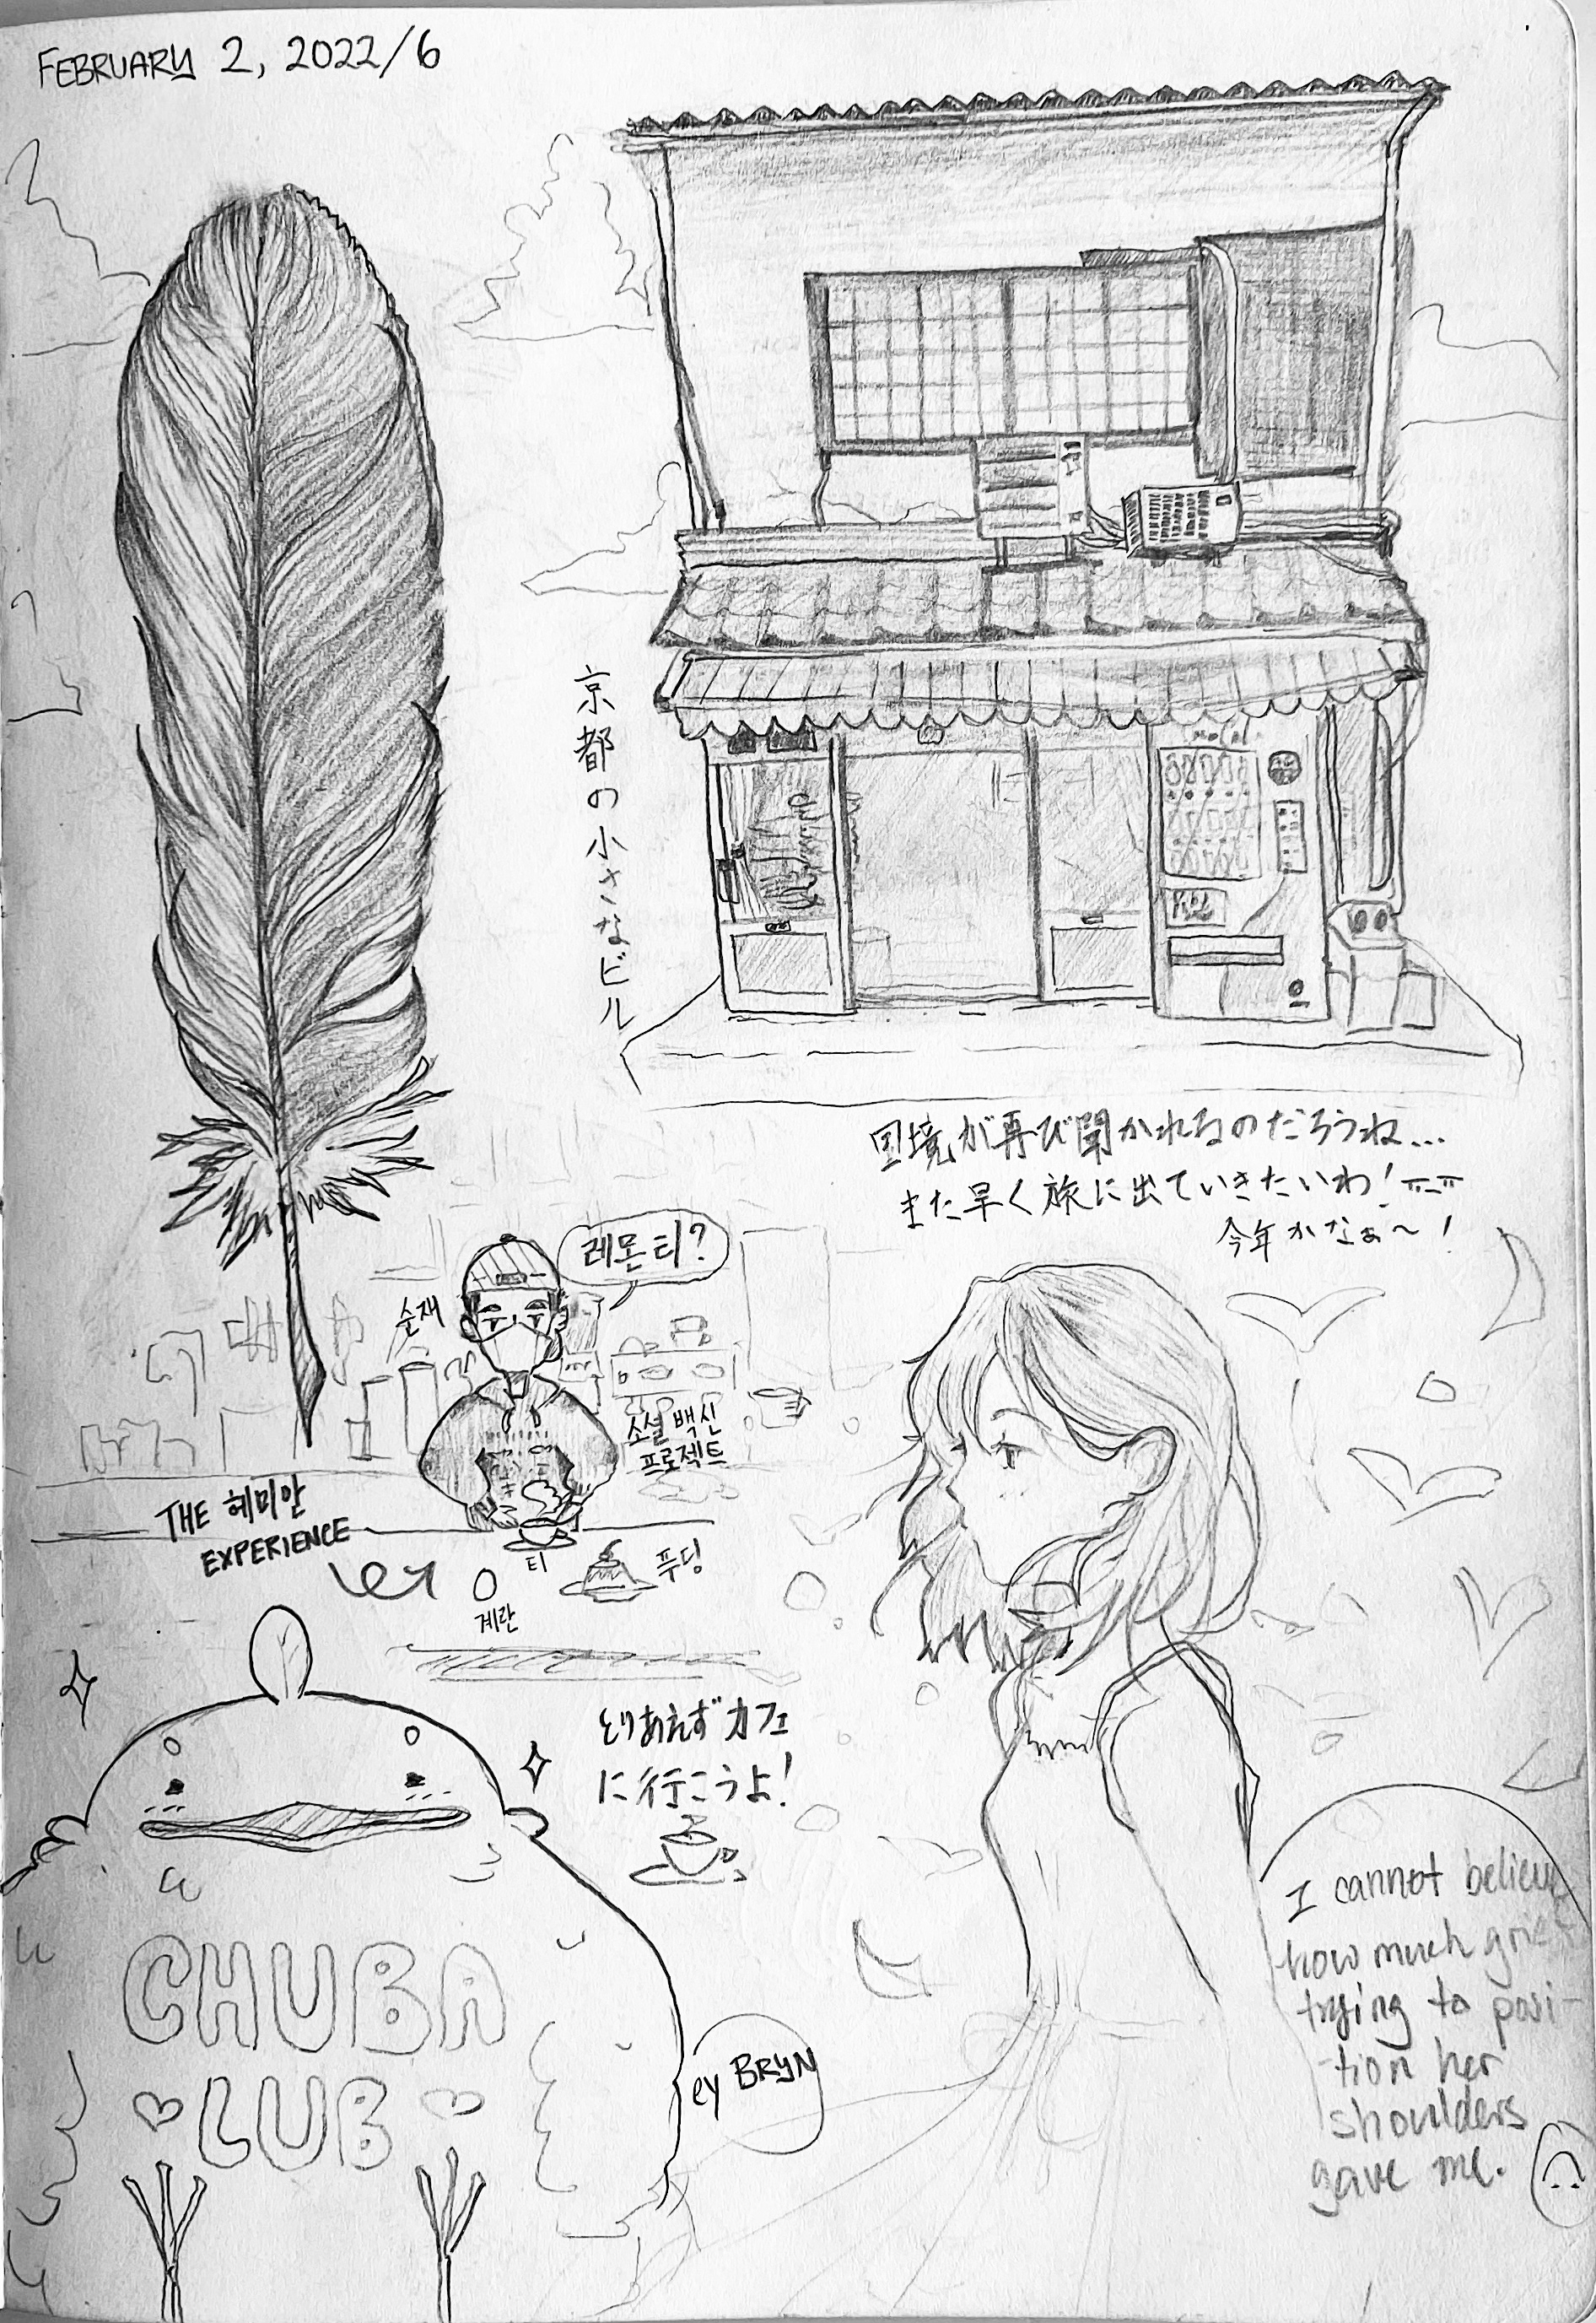 FEBRUARY 2, 2022/6
京都の小さなビル
国境が再び開かれるのだろうね...
また早く旅に出ていきたいわ！ㅠㅠ
今年かなぁ～！
레몬티?
순재
소셜 백신
프로젝트
THE 헤미안
EXPERIENCE
티
푸딩
계란
とりあえずカフェ
に行こうよ！
CHUBA
LUB
ey BRYN
I cannot believe
how much grief
trying to posi-
tion her
shoulders
gave me.